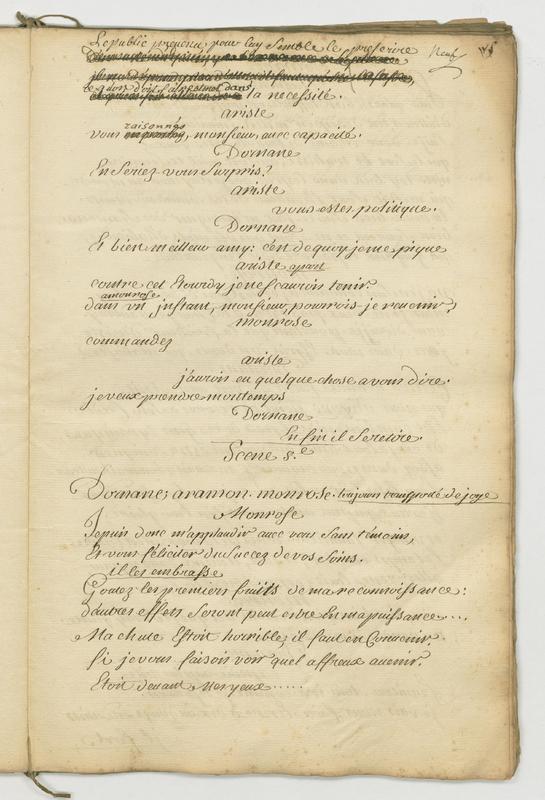 Le public prevenu, pour luy semble le prescrire
ce qu'on doit dans
la necessité.
ariste
raisonnés
vous, monsieur, avec capacité.
Dornane
En seriez vous surpris?
ariste
vous estes politique.
Dornane
Et bien meilleur amy: c'est de quoy je me pique
ariste apart
contre cet Etourdy je ne scaurois tenir.
amonrose
dans un instant, monsieur, pourrois-je revenir,
monrose
commandez
ariste
j'aurois eu quelque chose a vous dire.
je veux prendre mon temps
Dornane
Enfin il se retire.
Scene 8.e
Dornane, aramon. monrose. toujours transporté de joye
Monrose
Je puis donc m'applaudir avec vous sans témoins,
Et vous féliciter du succez de vos soins.
il les embrasse
Goutez les premiers fruits de ma reconnoissance:
d'autres effets seront peut estre En ma puissance....
Ma chute Estoit horrible, il faut en Convenir.
Si je vous faisois voir quel affreux avenir.
Etoit devant mes yeux.....